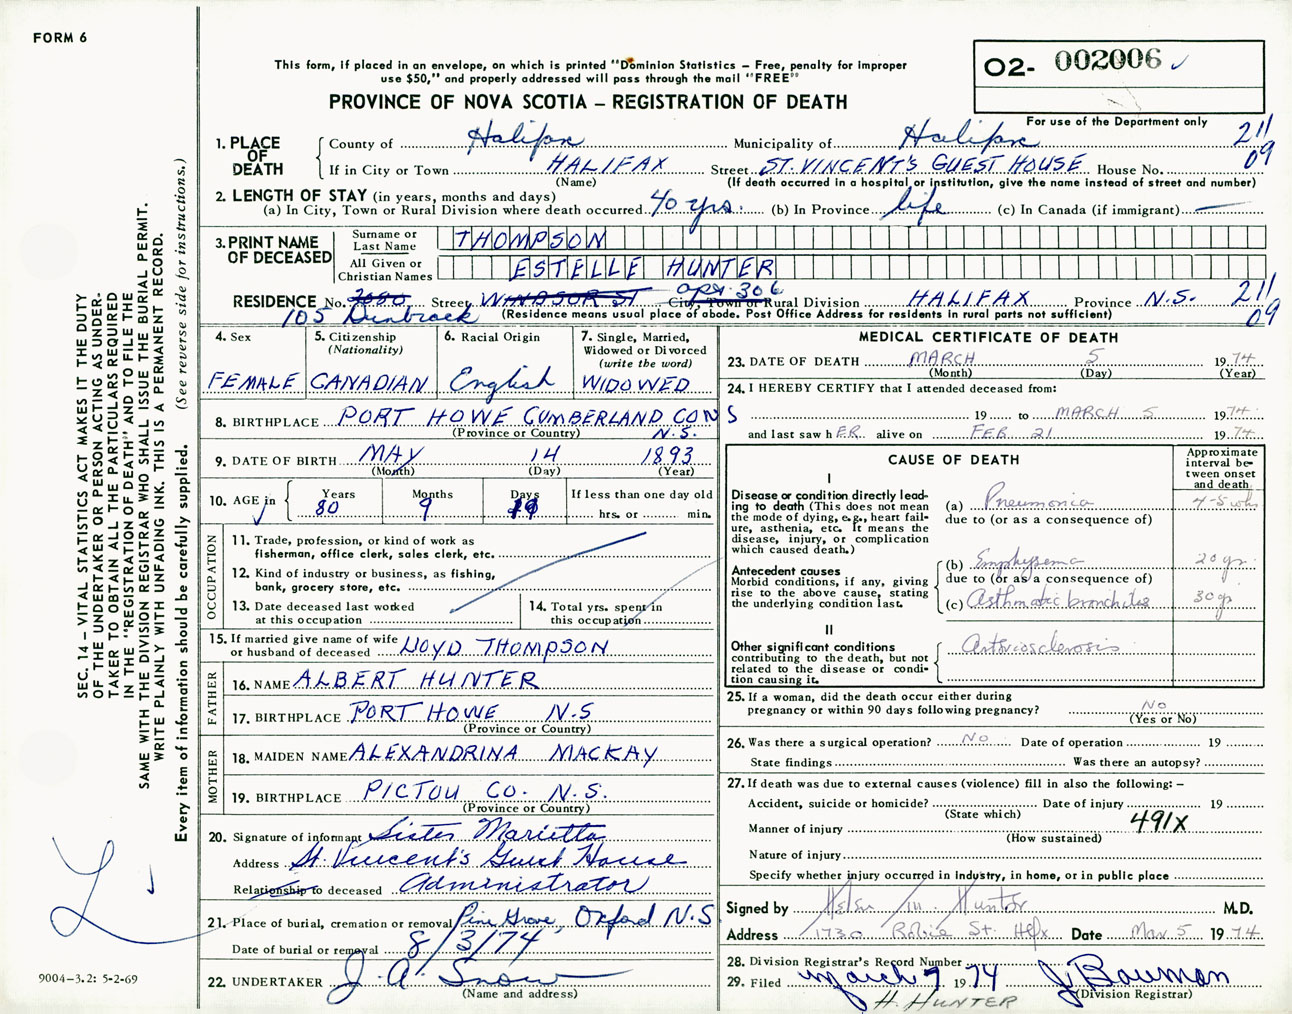 FORM 6
This form, if placed in an envelope, on which is printed "Dominion Statistics – Free, penalty for improper
use $50," and properly addressed will pass through the mail "FREE"
PROVINCE OF NOVA SCOTIA – REGISTRATION OF DEATH
02- 002006
For use of the Department only
211
09
1. PLACE OF DEATH
County of Halifax Municipality of Halifax
If in City or Town HALIFAX Street ST. VINCENT'S GUEST HOUSE House No.
(Name) (If death occurred in a hospital or institution, give the name instead of street and number)
2. LENGTH OF STAY (in years, months and days)
(a) In City, Town or Rural Division where death occurred 40 yrs. (b) In Province life (c) In Canada (if immigrant) —
3. PRINT NAME OF DECEASED
Surname or Last Name THOMPSON
All Given or Christian Names ESTELLE HUNTER
APT. 306
RESIDENCE No. Street WINDSOR ST City, Town or Rural Division HALIFAX Province N.S. 211
105 Dunbrack (Residence means usual place of abode. Post Office Address for residents in rural parts not sufficient) 09
4. Sex
FEMALE
5. Citizenship (Nationality)
CANADIAN
6. Racial Origin
English
7. Single, Married, Widowed or Divorced (write the word)
WIDOWED
8. BIRTHPLACE PORT HOWE CUMBERLAND CO N S
(Province or Country) N.S.
9. DATE OF BIRTH MAY 14 1893
(Month) (Day) (Year)
10. AGE in
Years Months Days If less than one day old
80 9 19 hrs. or min.
OCCUPATION
11. Trade, profession, or kind of work as
fisherman, office clerk, sales clerk, etc.
12. Kind of industry or business, as fishing,
bank, grocery store, etc.
13. Date deceased last worked
at this occupation
14. Total yrs. spent in
this occupation
15. If married give name of wife
or husband of deceased LLOYD THOMPSON
FATHER
16. NAME ALBERT HUNTER
17. BIRTHPLACE PORT HOWE N.S
(Province or Country)
MOTHER
18. MAIDEN NAME ALEXANDRINA MACKAY
19. BIRTHPLACE PICTOU CO. N.S.
(Province or Country)
20. Signature of informant Sister Marietta
Address St Vincent's Guest House
Relationship to deceased Administrator
21. Place of burial, cremation or removal Pine Grove, Oxford N.S.
Date of burial or removal 8/3/74
22. UNDERTAKER J. A. Snow
(Name and address)
MEDICAL CERTIFICATE OF DEATH
23. DATE OF DEATH MARCH 5 1974
(Month) (Day) (Year)
24. I HEREBY CERTIFY that I attended deceased from:
19 to MARCH 5 1974
and last saw h ER alive on FEB 21 1974
CAUSE OF DEATH
Approximate interval between onset and death
I
Disease or condition directly lead-
ing to death (This does not mean
the mode of dying, e.g., heart fail-
ure, asthenia, etc. It means the
disease, injury, or complication
which caused death.)
(a) Pneumonia 4-5 wks
due to (or as a consequence of)
Antecedent causes
Morbid conditions, if any, giving
rise to the above cause, stating
the underlying condition last.
(b) Emphysema 20 yr.
due to (or as a consequence of)
(c) Asthmatic bronchitis 30 yr
II
Other significant conditions
contributing to the death, but not
related to the disease or condi-
tion causing it.
Arteriosclerosis
25. If a woman, did the death occur either during
pregnancy or within 90 days following pregnancy? NO
(Yes or No)
26. Was there a surgical operation? NO Date of operation 19
State findings Was there an autopsy?
27. If death was due to external causes (violence) fill in also the following: –
Accident, suicide or homicide? Date of injury 19
(State which)
Manner of injury 491X
(How sustained)
Nature of injury
Specify whether injury occurred in industry, in home, or in public place
Signed by Helen M. Hunter M.D.
Address 1730 Robie St. Hfx Date Mar 5 1974
28. Division Registrar's Record Number
29. Filed March 7 1974 J Bauman
(Division Registrar)
H. HUNTER
SEC. 14 – VITAL STATISTICS ACT MAKES IT THE DUTY
OF THE UNDERTAKER OR PERSON ACTING AS UNDER-
TAKER TO OBTAIN ALL THE PARTICULARS REQUIRED
IN THE "REGISTRATION OF DEATH" AND TO FILE THE
SAME WITH THE DIVISION REGISTRAR WHO SHALL ISSUE THE BURIAL PERMIT.
WRITE PLAINLY WITH UNFADING INK. THIS IS A PERMANENT RECORD.
Every item of information should be carefully supplied. (See reverse side for instructions.)
9004–3.2: 5-2-69